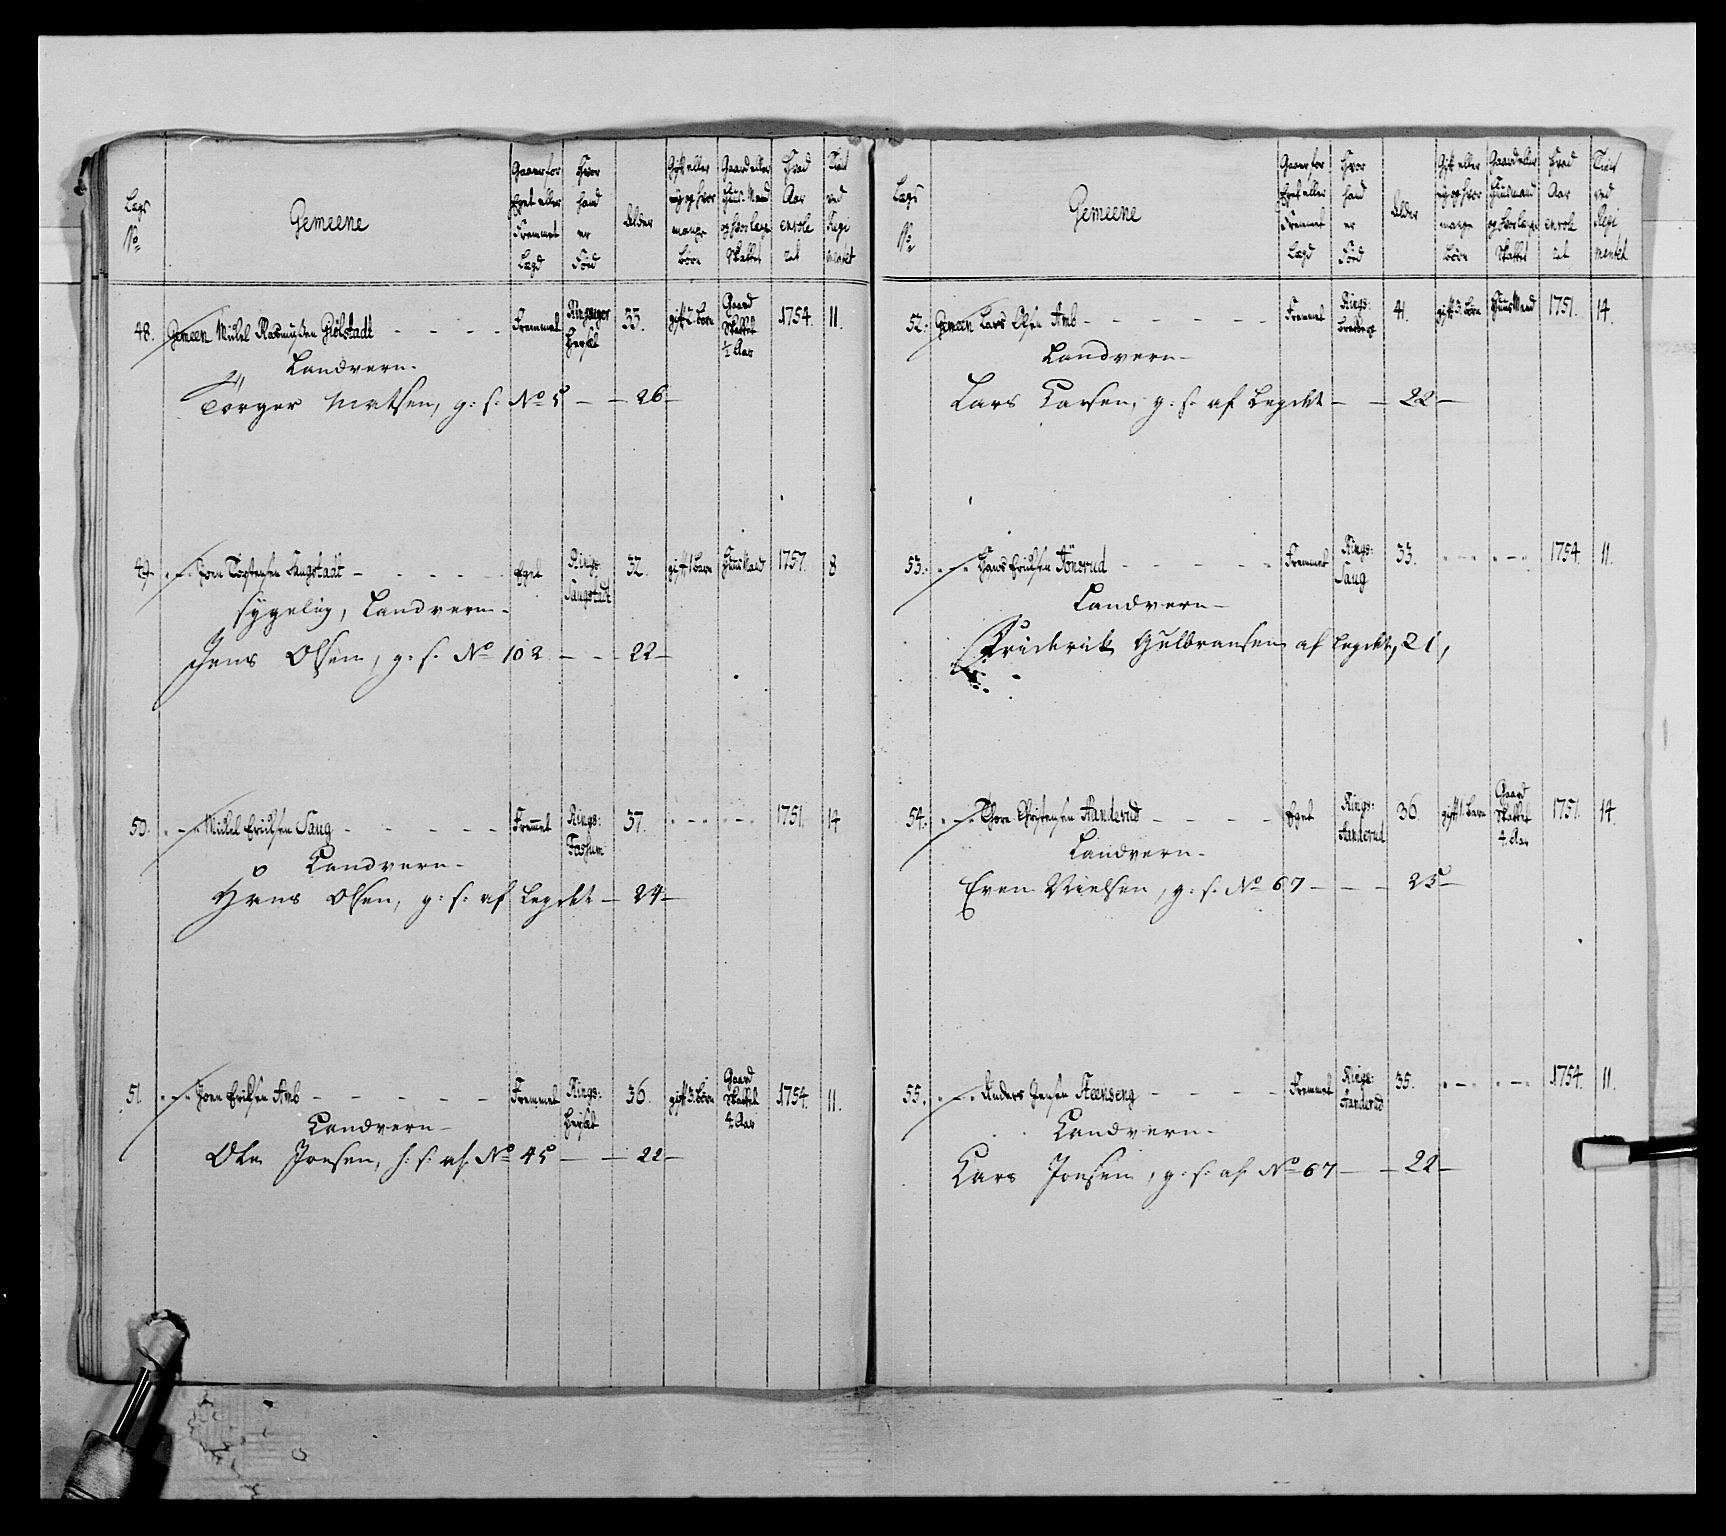 Lægs No
Gemeene
Gaaer for Eget eller Fremmet Lægd
Hvor hand er Född
Alder
Gift eller ey og hvor mange Börn
Gaard eller Huus Mand og hvor lange Skattet
Hvad Aar enrole ret
Tient ved Regi mentet
48. Gemeen Mickel Rasmußen Giölstadt - - - - Fremmet Ringsager 33. gift 2 Börn Gaard Skattet ½ Aar 1754. 11.
Landvern.
Törger Matsen, g: s: No 5 - - 26 -
49. - - - Joen Torstensen Saugstadt - - - - Eget Rings: Saugstadt 32. gift 1 Barn Huus Mand 1757. 8
sygelig, Landvern.
Jens Olsen, g: s: No 102 - - 22 -
50. - - - Mickel Ericksen Saug - - - - - Fremet Rings: 37. - - - - - - 1751. 14
Landvern -
Hans Olsen, g: s: af Legdet - 24 -
51. - - - Joen Ericksen Amb - - - - - - Fremmet Rings: 36. gift 3. Börn Gaard Skattet 4. Aar 1754. 11.
Landvern -
Ole Joensen, s: s: af No 45 - - 22 -
Lægs No
Gemeene
Gaaer for Eget eller Fremmet Lægd
Hvor hand er Född
Alder
Gift eller ey og hvor mange Börn
Gaard eller Huusmand og hvor lange Skattet
Hvad Aar enrole ret
Tient ved Regi mentet
52. Gemeen Lars Olsen Amb - - - - - - - Fremmet Rings: 41. gift 3. Börn Huus Mand 1751. 14.
Landvern -
Lars Larsen, g: s: af Legdet - - 22 -
53. - - - Hans Ericksen Tönsrud - - - - - Fremmet Rings: Saug 33. - - - - - - 1754. 11.
Landvern -
Friderik Gulbransen af Legdet, 21,
54. - - - Thore Christensen Aanderud - - - - Eget Rings: Aanderud 36. gift 1 Barn Gaard Skattet 4. Aar 1751. 14.
Landvern -
Even Nielsen, g: s: No 67 - - - 25 -
55. - - - Anders Jensen Steenseng - - - - Fremmet Rings: Aanderud 35. - - - - - - 1754. 11.
Landvern -
Lars Joensen, g: s: af No 67 - - 22 -